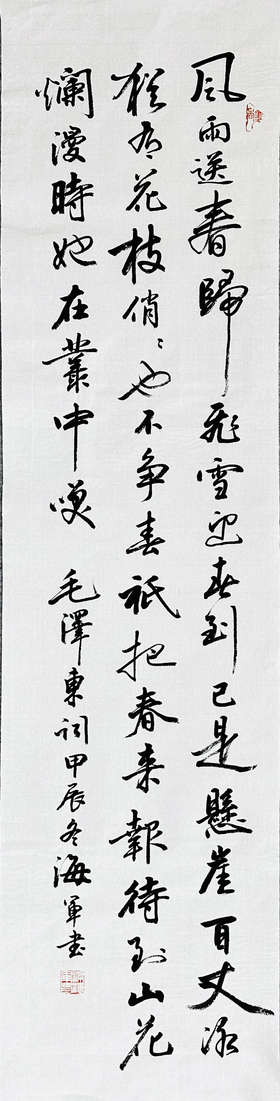 風雨送春歸飛雪迎春到已是懸崖百丈冰
猶有花枝俏〻也不爭春祇把春來報待到山花
爛漫時她在叢中笑　毛澤東詞甲辰冬海軍書